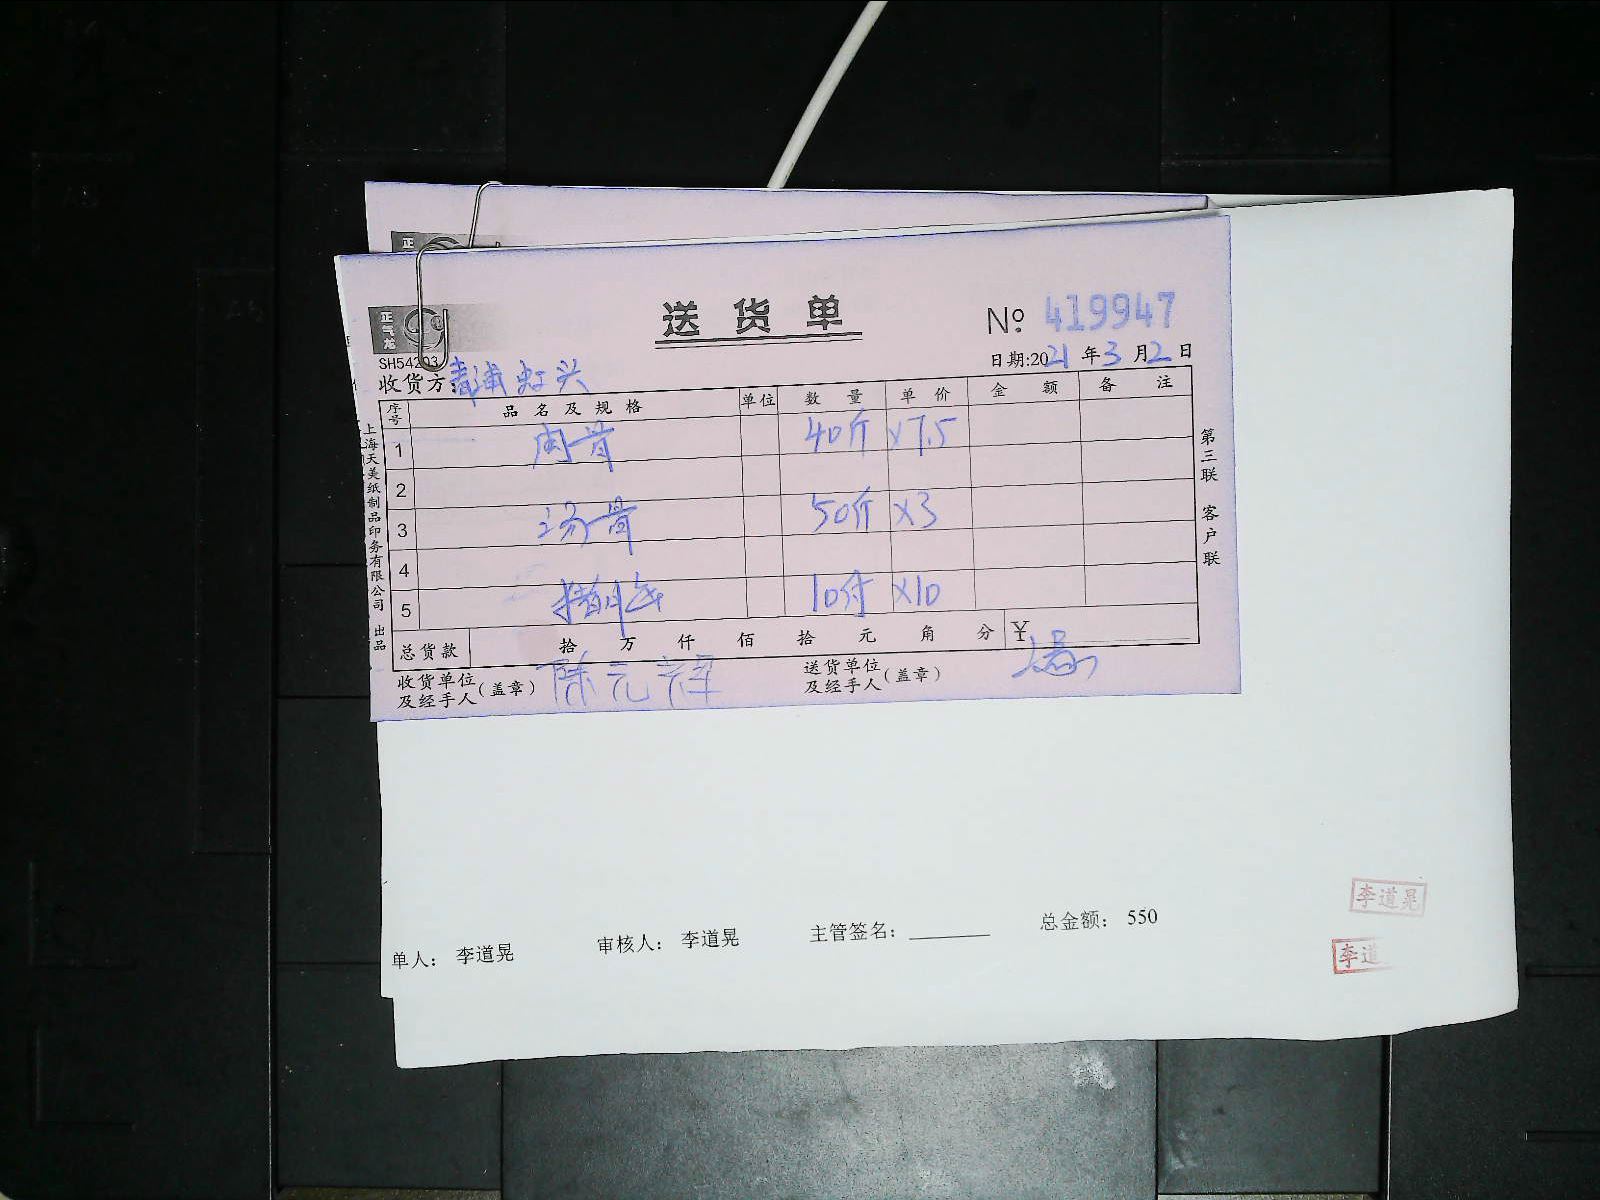 正
正气龙
送货单
№ 419947
SH54203
日期:2021年3月2日
收货方:青浦虹头
序号 品名及规格 单位 数量 单价 金额 备注
1 肉骨 40斤 ×7.5
2
3 汤骨 50斤 ×3
4
5 猪 10付 ×10
总货款 拾 万 仟 佰 拾 元 角 分 ¥
收货单位及经手人(盖章) 陈元
送货单位及经手人(盖章)
上海天美纸制品印务有限公司 出品
第三联 客户联
单人: 李道晃 审核人: 李道晃 主管签名: 总金额: 550
李道晃
李道